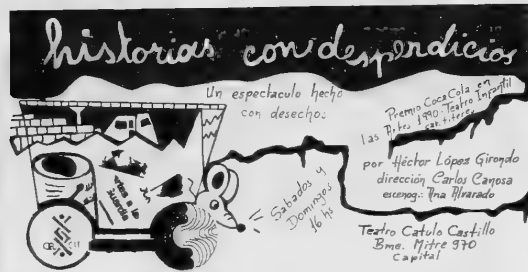 historias con desperdicios
Un espectaculo hecho
con desechos
Premio Coca Cola en
las Artes 1990: Teatro Infantil
por Héctor López Girondo
dirección Carlos Canosa
escenog.: Ana Alvarado
Sabados y
Domingos
16 hs
Teatro Catulo Castillo
Bme. Mitre 970
Capital